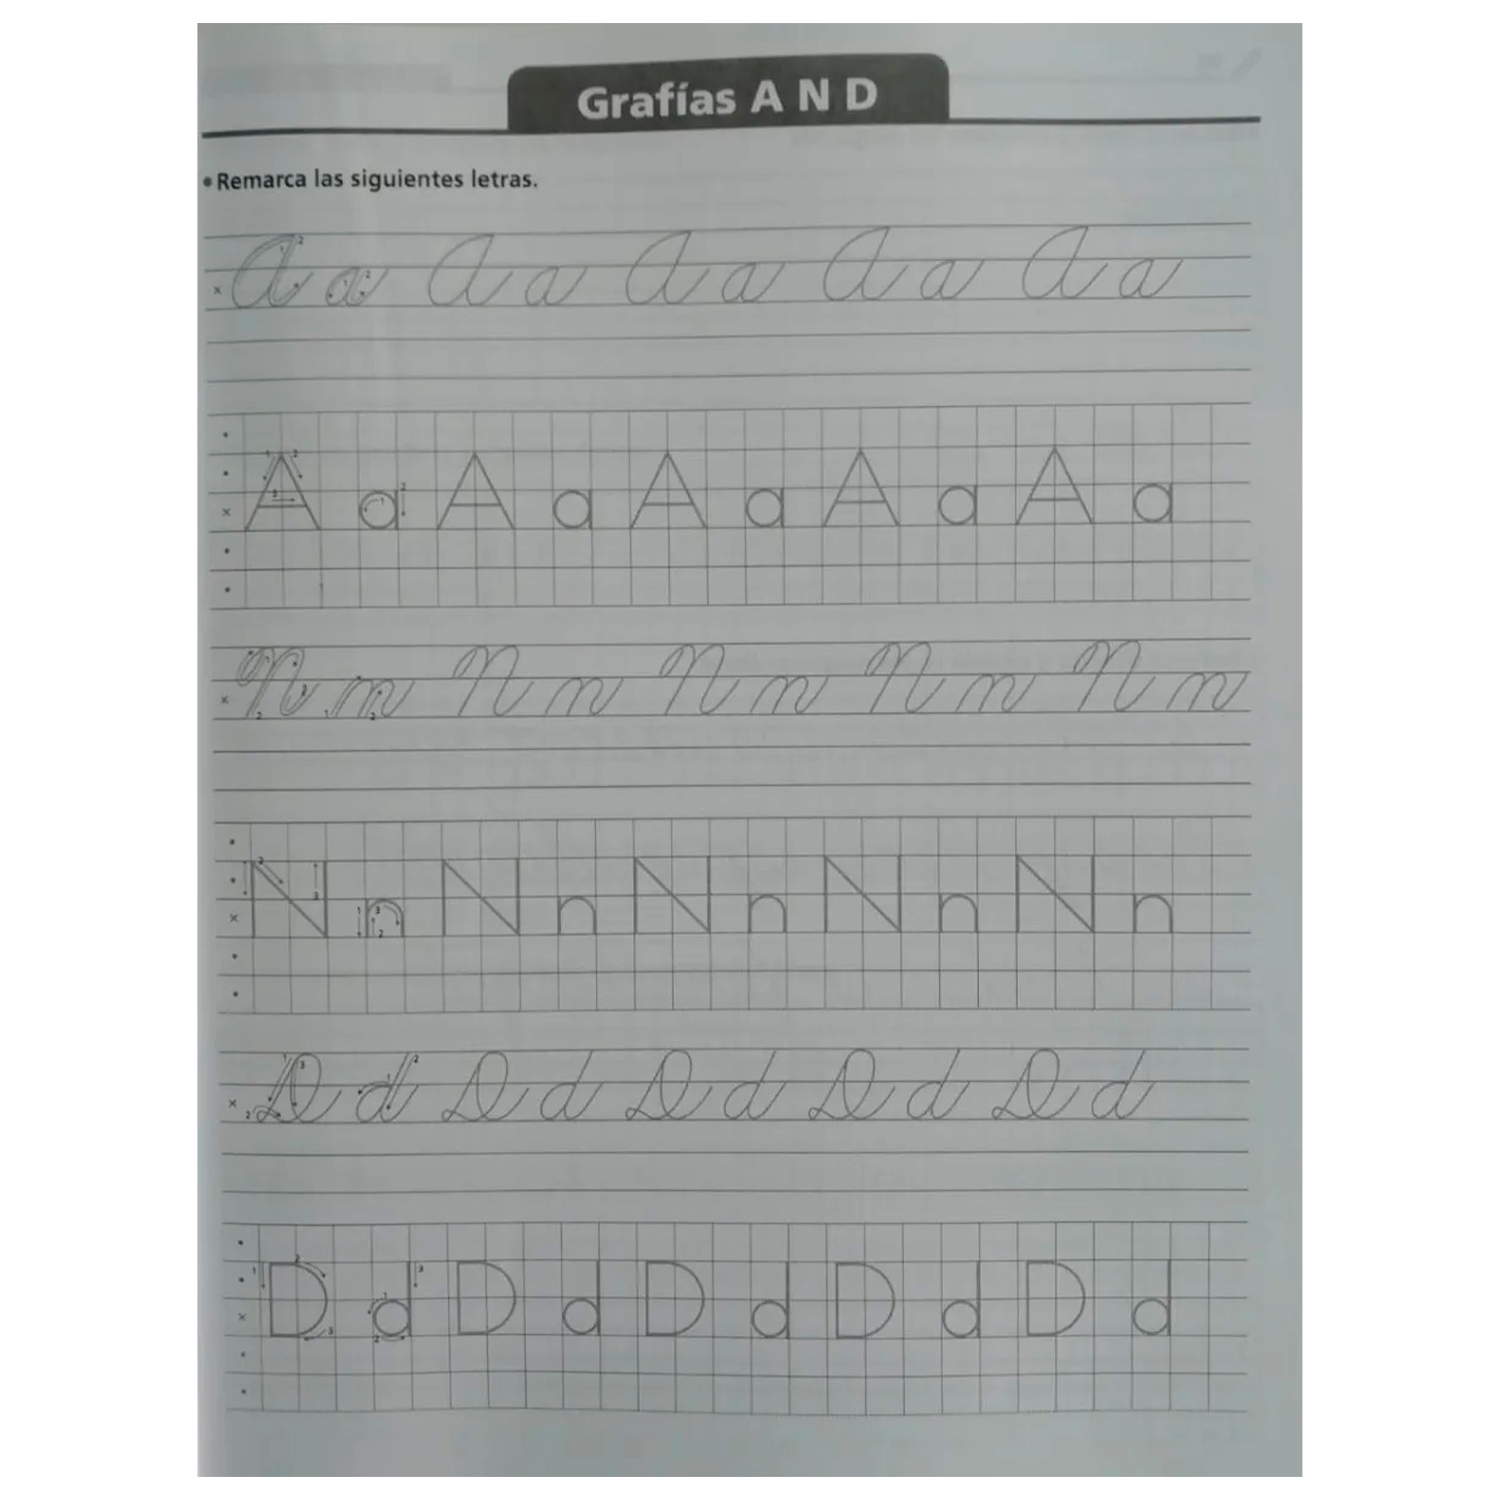 Grafías A N D
• Remarca las siguientes letras.
A a A a A a A a A a
A a A a A a A a A a
N n N n N n N n N n
N n N n N n N n N n
D d D d D d D d D d
D d D d D d D d D d